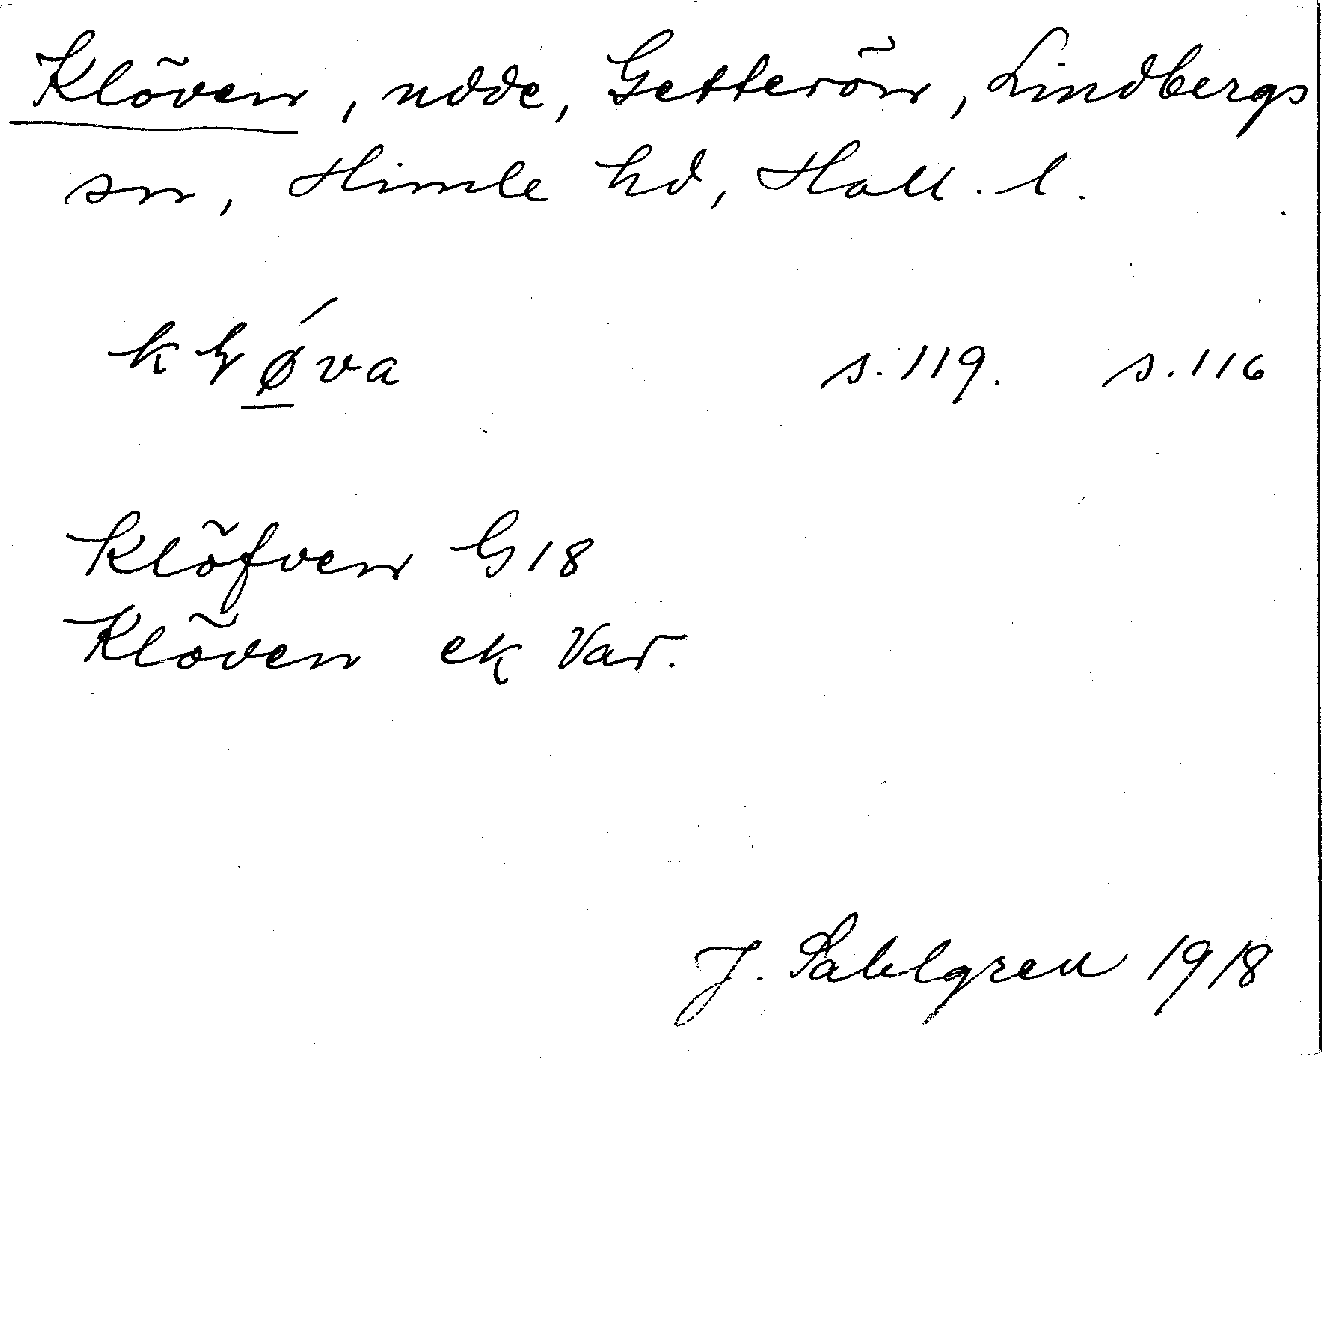 Klöven, udde, Getterön, Lindbergs
sn, Himle hd, Hall. l.
kløva s. 119. s. 116
Klöfven G18
Klöven ek Var.
J. Sahlgren 1918